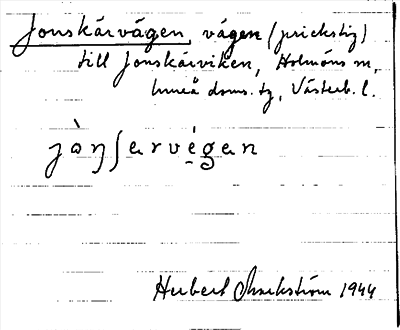 Jonskärvägen, vägen (prickstig)
till Jonskärviken, Holmöns sn,
Umeå doms. tg, Västerb. l.
jàŋʃarvégan
Hubert Skarström 1944